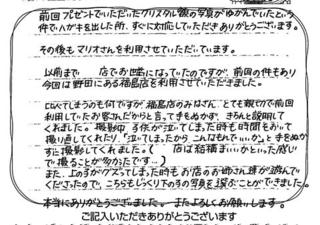 前回プレゼントでいただいたクリスタル額の写真がゆがんでいたという
件でハガキを出した所、すぐに対応していただきありがとうございます。
その後もマリオさんを利用させていただいています。
以前まで 店でお世話になっていたのですが、前回の件もあり
今回は野田にある福島店を利用させていただきました。
比べてしまうのも何ですが、福島店のみなさん、とても親切で前回
利用していたお客さんだからと言って手をぬかず、きちんと説明して
くれました。撮影中、子供が泣いてしまった時も時間をおいて
撮り直してくれたり、「泣いてしまったからこんなもんでいいか。」と手をぬか
ずに撮影してくれました。( 店は結構まぁいっかといった感じ
で撮ることが多かったです…)
また、上の子がグズってしまった時もお店のお姉さん達が遊んでい
てくださったので、こちらもじっくり下の子の写真を選ぶことができました。
本当にありがとうございました。またよろしくお願いします。
ご記入いただきありがとうございます